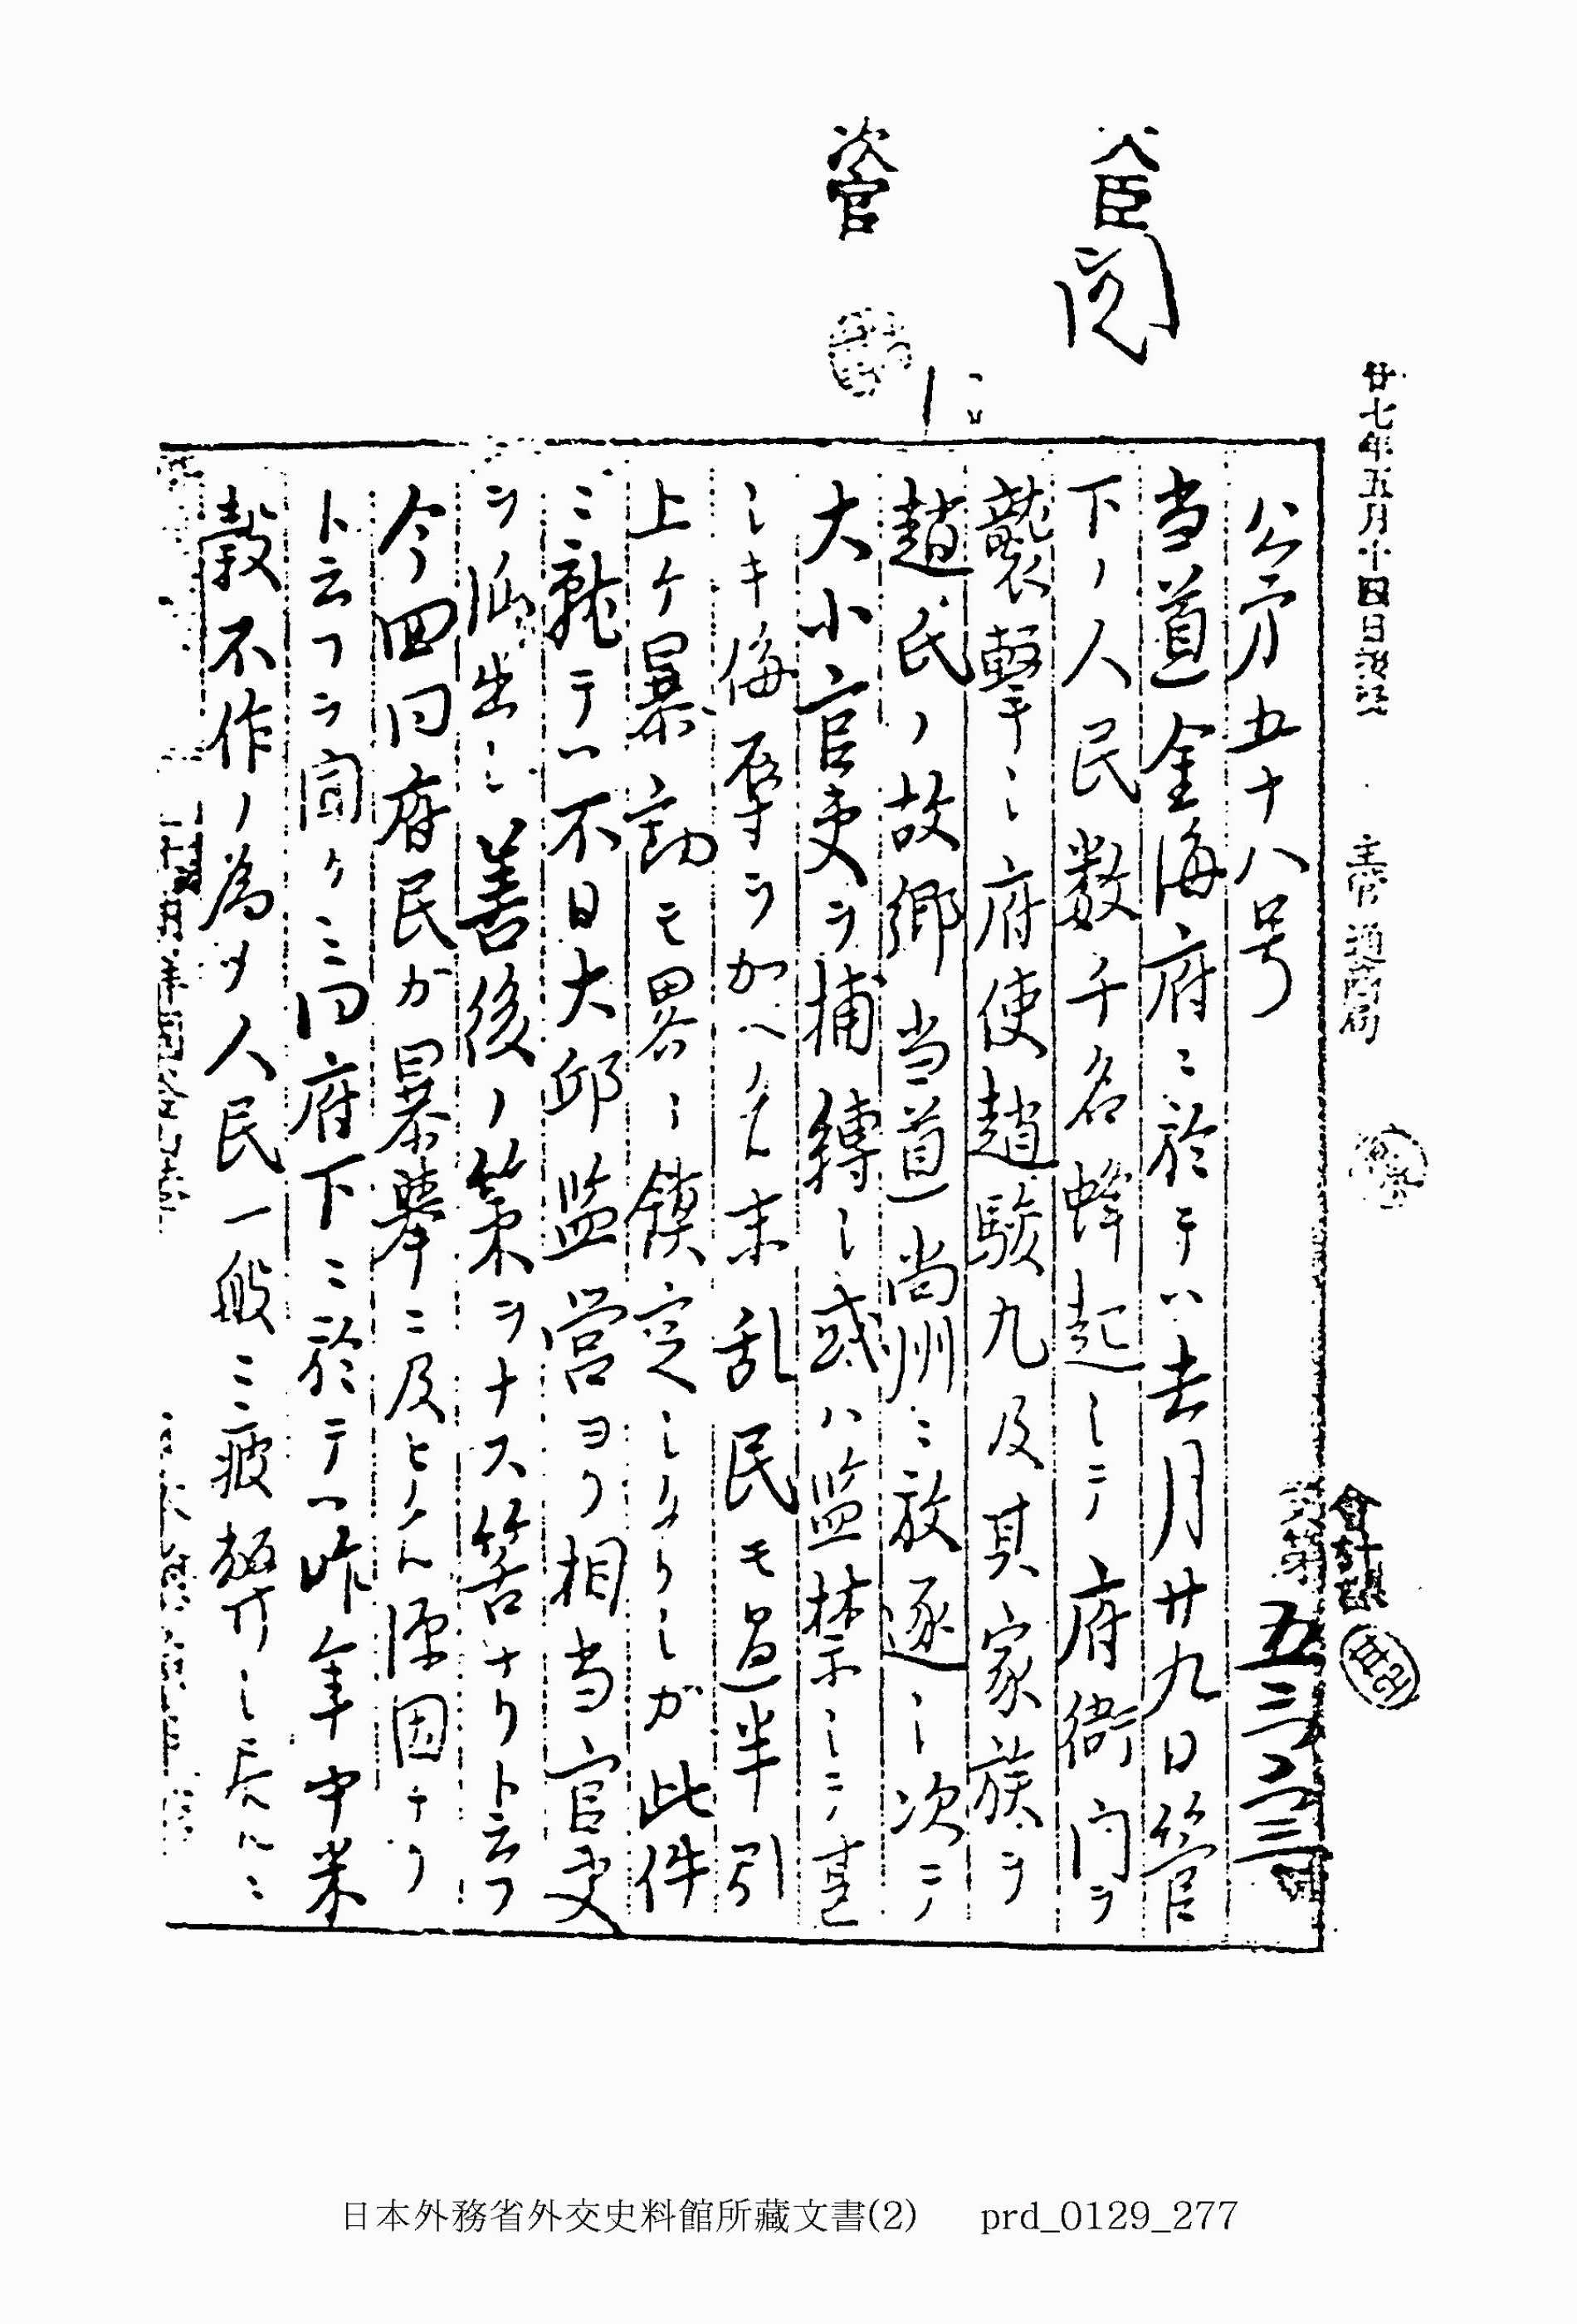 廿七年五月十四日接受
主管 通商局
大臣
次官
會計課
五三三
公第五十八号
当道金海府ニ於テハ去月廿九日管
下ノ人民数千名蜂起シテ府衙門ヲ
襲撃シ府使趙駿九及其家族ヲ
趙氏ノ故郷当道尚州ニ放逐シ次テ
大小官吏ヲ捕縛シ或ハ監禁シテ甚
シキ侮辱ヲ加ヘ末乱民モ過半引
上ケ暴動モ畧ニ鎮定シタリシガ此件
ニ就テハ不日大邱監営ヨリ相当官吏
ヲ派出シ善後ノ策ヲナス筈ナリト云フ
今回同府民ガ暴挙ニ及ヒタル原因ナリ
ト云フヲ聞クニ同府下ニ於テハ昨年中米
穀不作ノ為メ人民一般ニ疲弊シ居ルニ
日本外務省外交史料館所藏文書(2) prd_0129_277